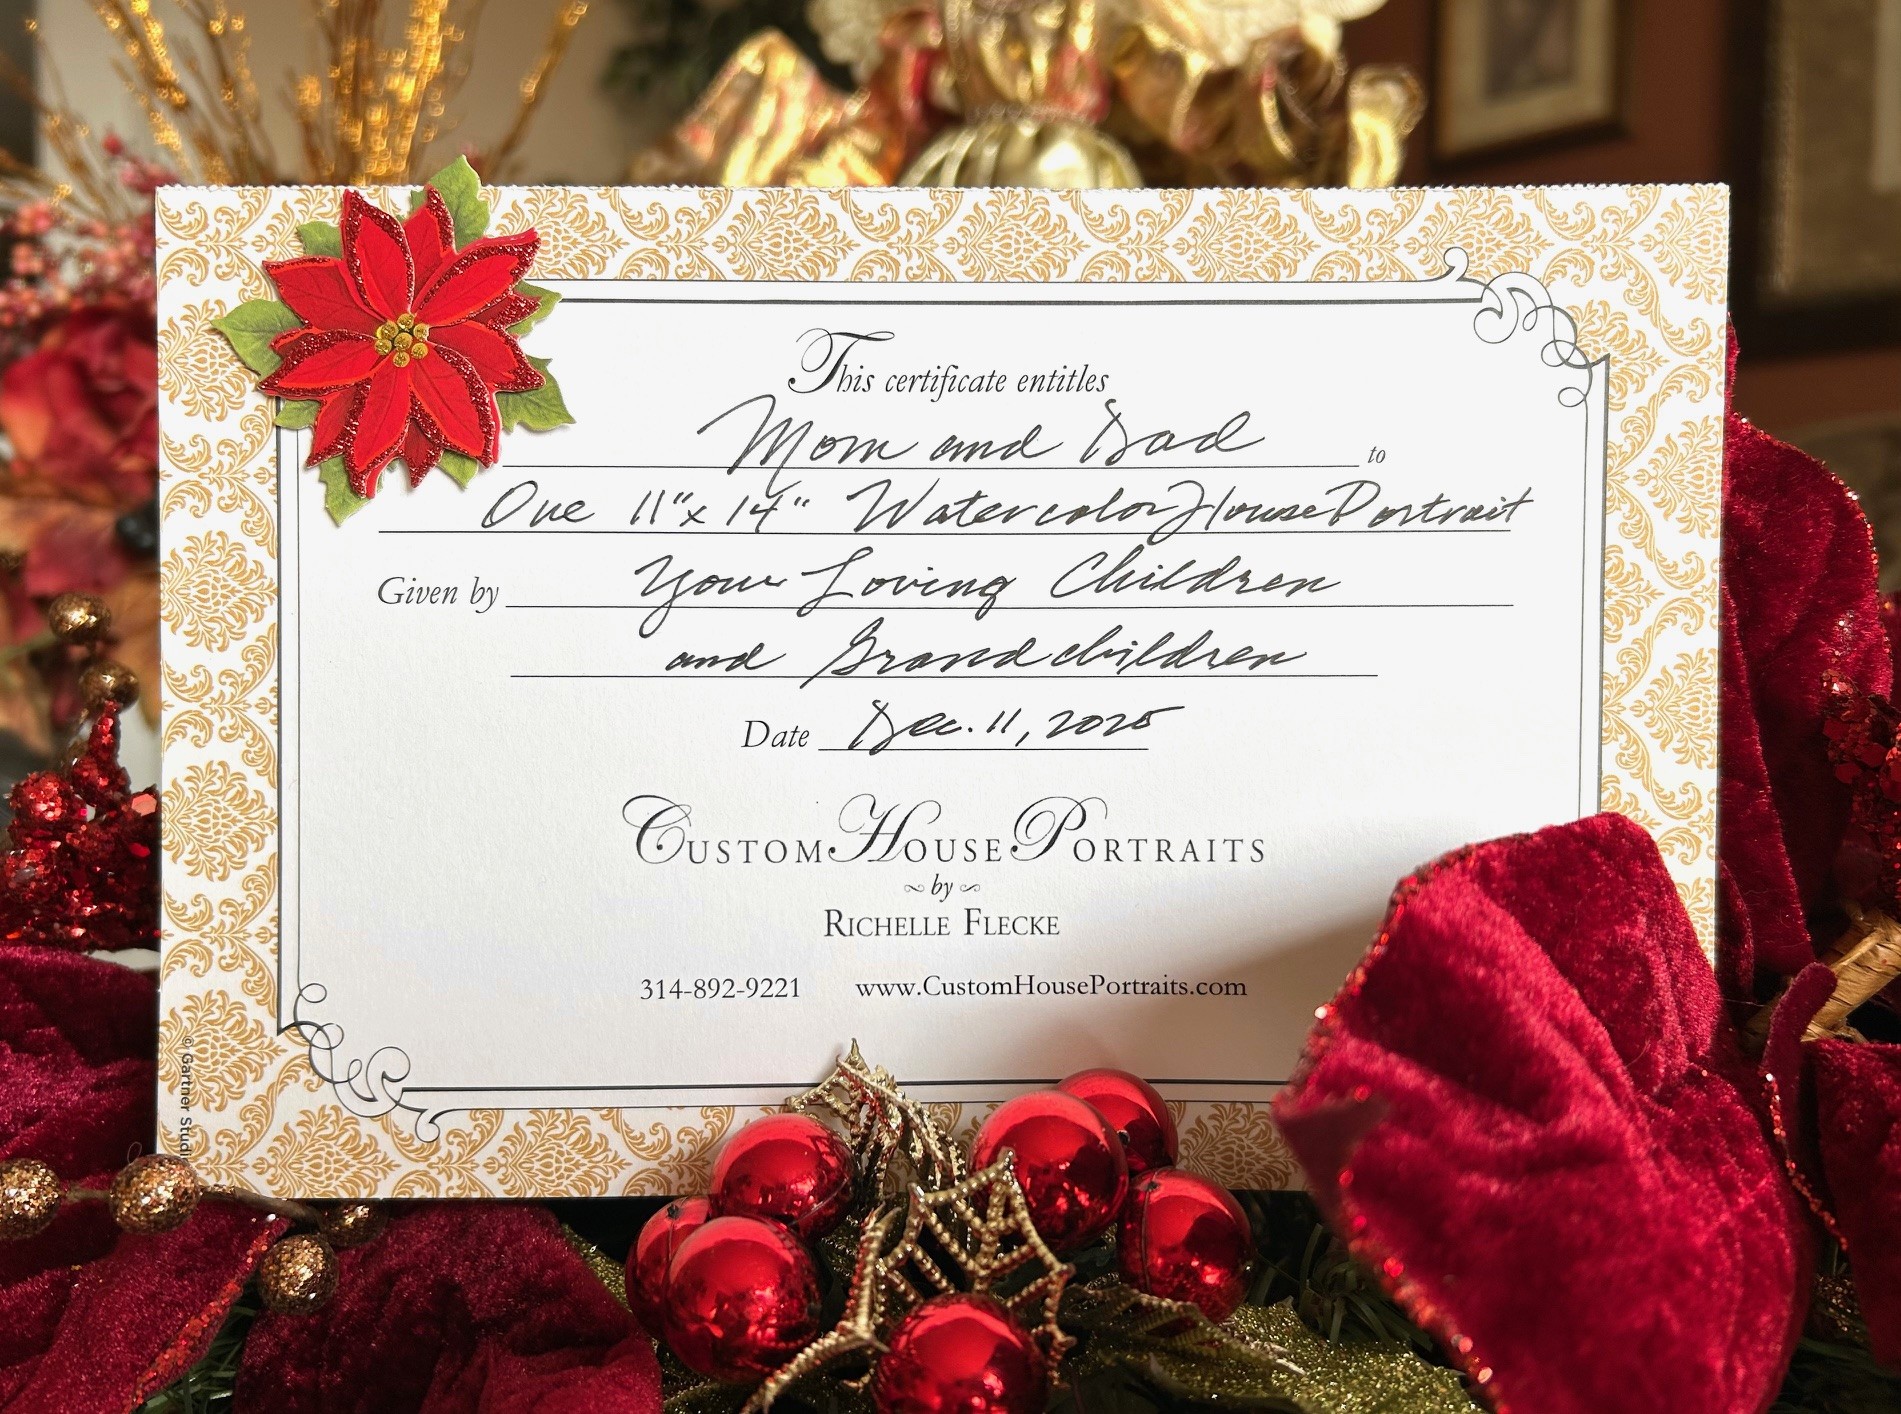 This certificate entitles
Mom and Dad to
One 11"x 14" Watercolor House Portrait
Given by Your Loving Children
and Grandchildren
Date Dec. 11, 2025
CustomHousePortraits
by
Richelle Flecke
314-892-9221 www.CustomHousePortraits.com
© Gartner Studi